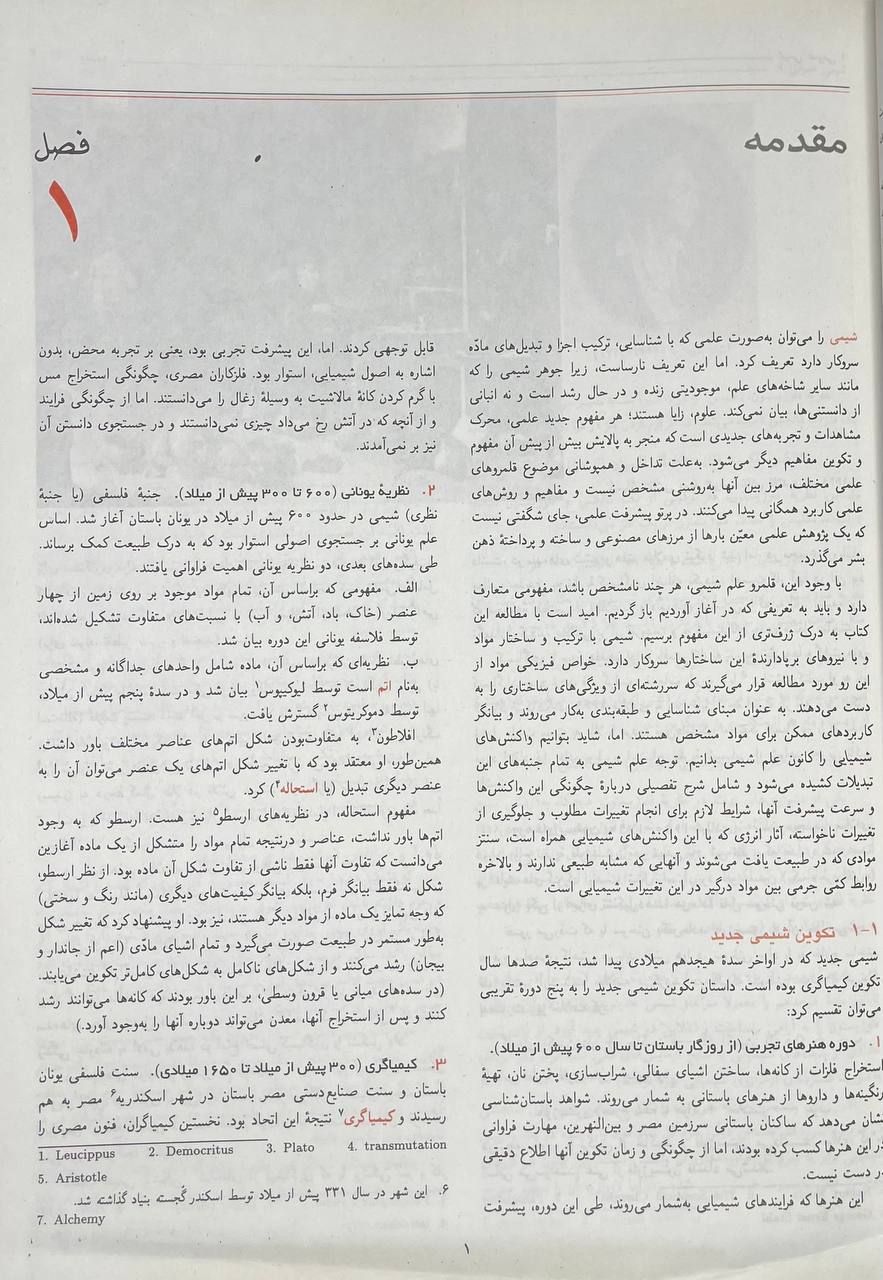 مقدمه
فصل
۱
شیمی را می‌توان به‌صورت علمی که با شناسایی، ترکیب اجزا و تبدیل‌های مادّه
سروکار دارد تعریف کرد. اما این تعریف نارساست، زیرا جوهر شیمی را که
مانند سایر شاخه‌های علم، موجودیتی زنده و در حال رشد است و نه انبانی
از دانستنی‌ها، بیان نمی‌کند. علوم، زایا هستند؛ هر مفهوم جدید علمی، محرک
مشاهدات و تجربه‌های جدیدی است که منجر به پالایش بیش از پیش آن مفهوم
و تکوین مفاهیم دیگر می‌شود. به‌علت تداخل و همپوشانی موضوع قلمروهای
علمی مختلف، مرز بین آنها به‌روشنی مشخص نیست و مفاهیم و روش‌های
علمی کاربرد همگانی پیدا می‌کنند. در پرتو پیشرفت علمی، جای شگفتی نیست
که یک پژوهش علمی معیّن بارها از مرزهای مصنوعی و ساخته و پرداختهٔ ذهن
بشر می‌گذرد.
با وجود این، قلمرو علم شیمی، هر چند نامشخص باشد، مفهومی متعارف
دارد و باید به تعریفی که در آغاز آوردیم باز گردیم. امید است با مطالعه این
کتاب به درک ژرف‌تری از این مفهوم برسیم. شیمی با ترکیب و ساختار مواد
و با نیروهای برپادارندهٔ این ساختارها سروکار دارد. خواص فیزیکی مواد از
این رو مورد مطالعه قرار می‌گیرند که سررشته‌ای از ویژگی‌های ساختاری را به
دست می‌دهند. به عنوان مبنای شناسایی و طبقه‌بندی به‌کار می‌روند و بیانگر
کاربردهای ممکن برای مواد مشخص هستند. اما، شاید بتوانیم واکنش‌های
شیمیایی را کانون علم شیمی بدانیم. توجه علم شیمی به تمام جنبه‌های این
تبدیلات کشیده می‌شود و شامل شرح تفصیلی دربارهٔ چگونگی این واکنش‌ها
و سرعت پیشرفت آنها، شرایط لازم برای انجام تغییرات مطلوب و جلوگیری از
تغییرات ناخواسته، آثار انرژی که با این واکنش‌های شیمیایی همراه است، سنتز
موادی که در طبیعت یافت می‌شوند و آنهایی که مشابه طبیعی ندارند و بالاخره
روابط کمّی جرمی بین مواد درگیر در این تغییرات شیمیایی است.
۱-۱ تکوین شیمی جدید
شیمی جدید که در اواخر سدهٔ هیجدهم میلادی پیدا شد، نتیجهٔ صدها سال
تکوین کیمیاگری بوده است. داستان تکوین شیمی جدید را به پنج دورهٔ تقریبی
می‌توان تقسیم کرد:
۱. دوره هنرهای تجربی (از روزگار باستان تا سال ۶۰۰ پیش از میلاد).
استخراج فلزات از کانه‌ها، ساختن اشیای سفالی، شراب‌سازی، پختن نان، تهیهٔ
رنگینه‌ها و داروها از هنرهای باستانی به شمار می‌روند. شواهد باستان‌شناسی
نشان می‌دهد که ساکنان باستانی سرزمین مصر و بین‌النهرین، مهارت فراوانی
در این هنرها کسب کرده بودند، اما از چگونگی و زمان تکوین آنها اطلاع دقیقی
در دست نیست.
این هنرها که فرایندهای شیمیایی به‌شمار می‌روند، طی این دوره، پیشرفت
قابل توجهی کردند. اما، این پیشرفت تجربی بود، یعنی بر تجربه محض، بدون
اشاره به اصول شیمیایی، استوار بود. فلزکاران مصری، چگونگی استخراج مس
با گرم کردن کانهٔ مالاشیت به وسیلهٔ زغال را می‌دانستند. اما از چگونگی فرایند
و از آنچه که در آتش رخ می‌داد چیزی نمی‌دانستند و در جستجوی دانستن آن
نیز بر نمی‌آمدند.
۲. نظریهٔ یونانی (۶۰۰ تا ۳۰۰ پیش از میلاد). جنبهٔ فلسفی (یا جنبهٔ
نظری) شیمی در حدود ۶۰۰ پیش از میلاد در یونان باستان آغاز شد. اساس
علم یونانی بر جستجوی اصولی استوار بود که به درک طبیعت کمک برساند.
طی سده‌های بعدی، دو نظریه یونانی اهمیت فراوانی یافتند.
الف. مفهومی که براساس آن، تمام مواد موجود بر روی زمین از چهار
عنصر (خاک، باد، آتش، و آب) با نسبت‌های متفاوت تشکیل شده‌اند،
توسط فلاسفه یونانی این دوره بیان شد.
ب. نظریه‌ای که براساس آن، ماده شامل واحدهای جداگانه و مشخصی
به‌نام اتم است توسط لیوکیپوس۱ بیان شد و در سدهٔ پنجم پیش از میلاد،
توسط دموکریتوس۲ گسترش یافت.
افلاطون۳، به متفاوت‌بودن شکل اتم‌های عناصر مختلف باور داشت.
همین‌طور، او معتقد بود که با تغییر شکل اتم‌های یک عنصر می‌توان آن را به
عنصر دیگری تبدیل (یا استحاله۴) کرد.
مفهوم استحاله، در نظریه‌های ارسطو۵ نیز هست. ارسطو که به وجود
اتم‌ها باور نداشت، عناصر و درنتیجه تمام مواد را متشکل از یک ماده آغازین
می‌دانست که تفاوت آنها فقط ناشی از تفاوت شکل آن ماده بود. از نظر ارسطو،
شکل نه فقط بیانگر فرم، بلکه بیانگر کیفیت‌های دیگری (مانند رنگ و سختی)
که وجه تمایز یک ماده از مواد دیگر هستند، نیز بود. او پیشنهاد کرد که تغییر شکل
به‌طور مستمر در طبیعت صورت می‌گیرد و تمام اشیای مادّی (اعم از جاندار و
بیجان) رشد می‌کنند و از شکل‌های ناکامل به شکل‌های کامل‌تر تکوین می‌یابند.
(در سده‌های میانی یا قرون وسطیٰ، بر این باور بودند که کانه‌ها می‌توانند رشد
کنند و پس از استخراج آنها، معدن می‌تواند دوباره آنها را به‌وجود آورد.)
۳. کیمیاگری (۳۰۰ پیش از میلاد تا ۱۶۵۰ میلادی). سنت فلسفی یونان
باستان و سنت صنایع‌دستی مصر باستان در شهر اسکندریه۶ مصر به هم
رسیدند و کیمیاگری۷ نتیجهٔ این اتحاد بود. نخستین کیمیاگران، فنون مصری را
1. Leucippus 2. Democritus 3. Plato 4. transmutation
5. Aristotle
۶. این شهر در سال ۳۳۱ پیش از میلاد توسط اسکندر گجسته بنیاد گذاشته شد.
7. Alchemy
۱